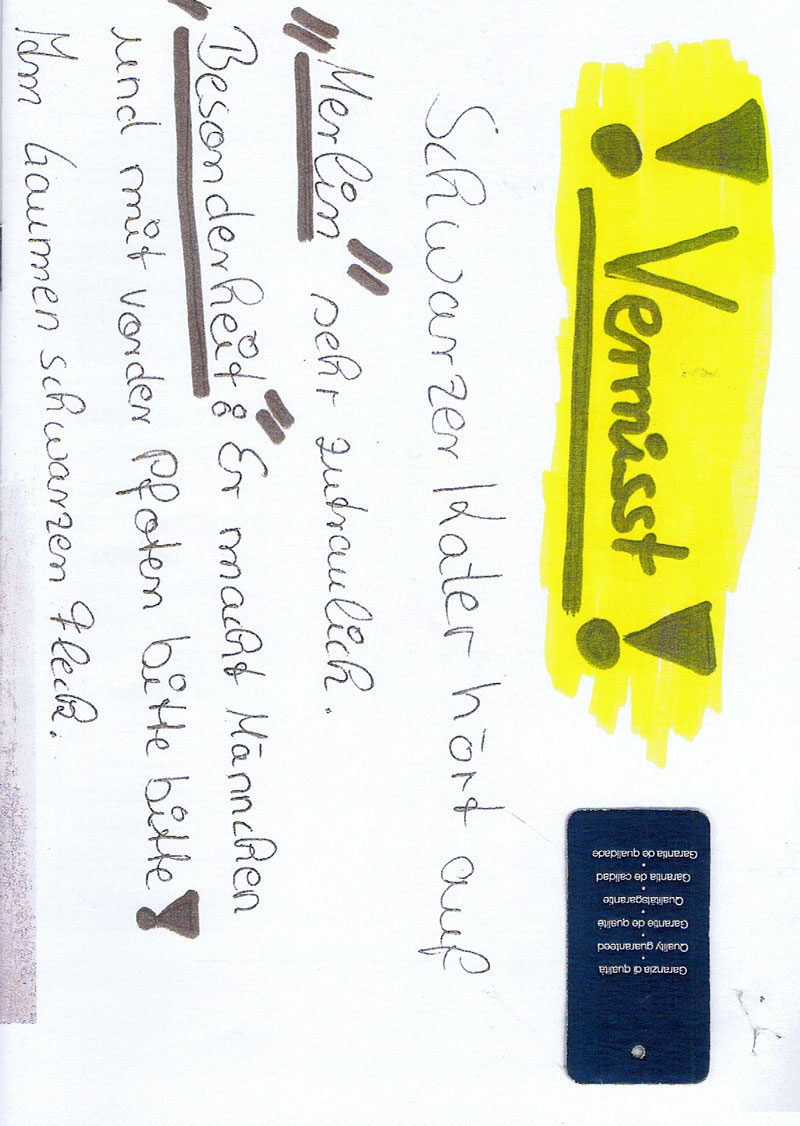 ! Vermisst !
Schwarzer Kater hört auf
"Merlin" sehr zutraulich.
"Besonderheit:" Er macht Männchen
und mit vorder Pfoten bitte bitte!
Im Gaumen schwarzen Fleck.
Garanzia di qualità
•
Quality guaranteed
•
Garantie de qualité
•
Qualitätsgarantie
•
Garantía de calidad
•
Garantia de qualidade